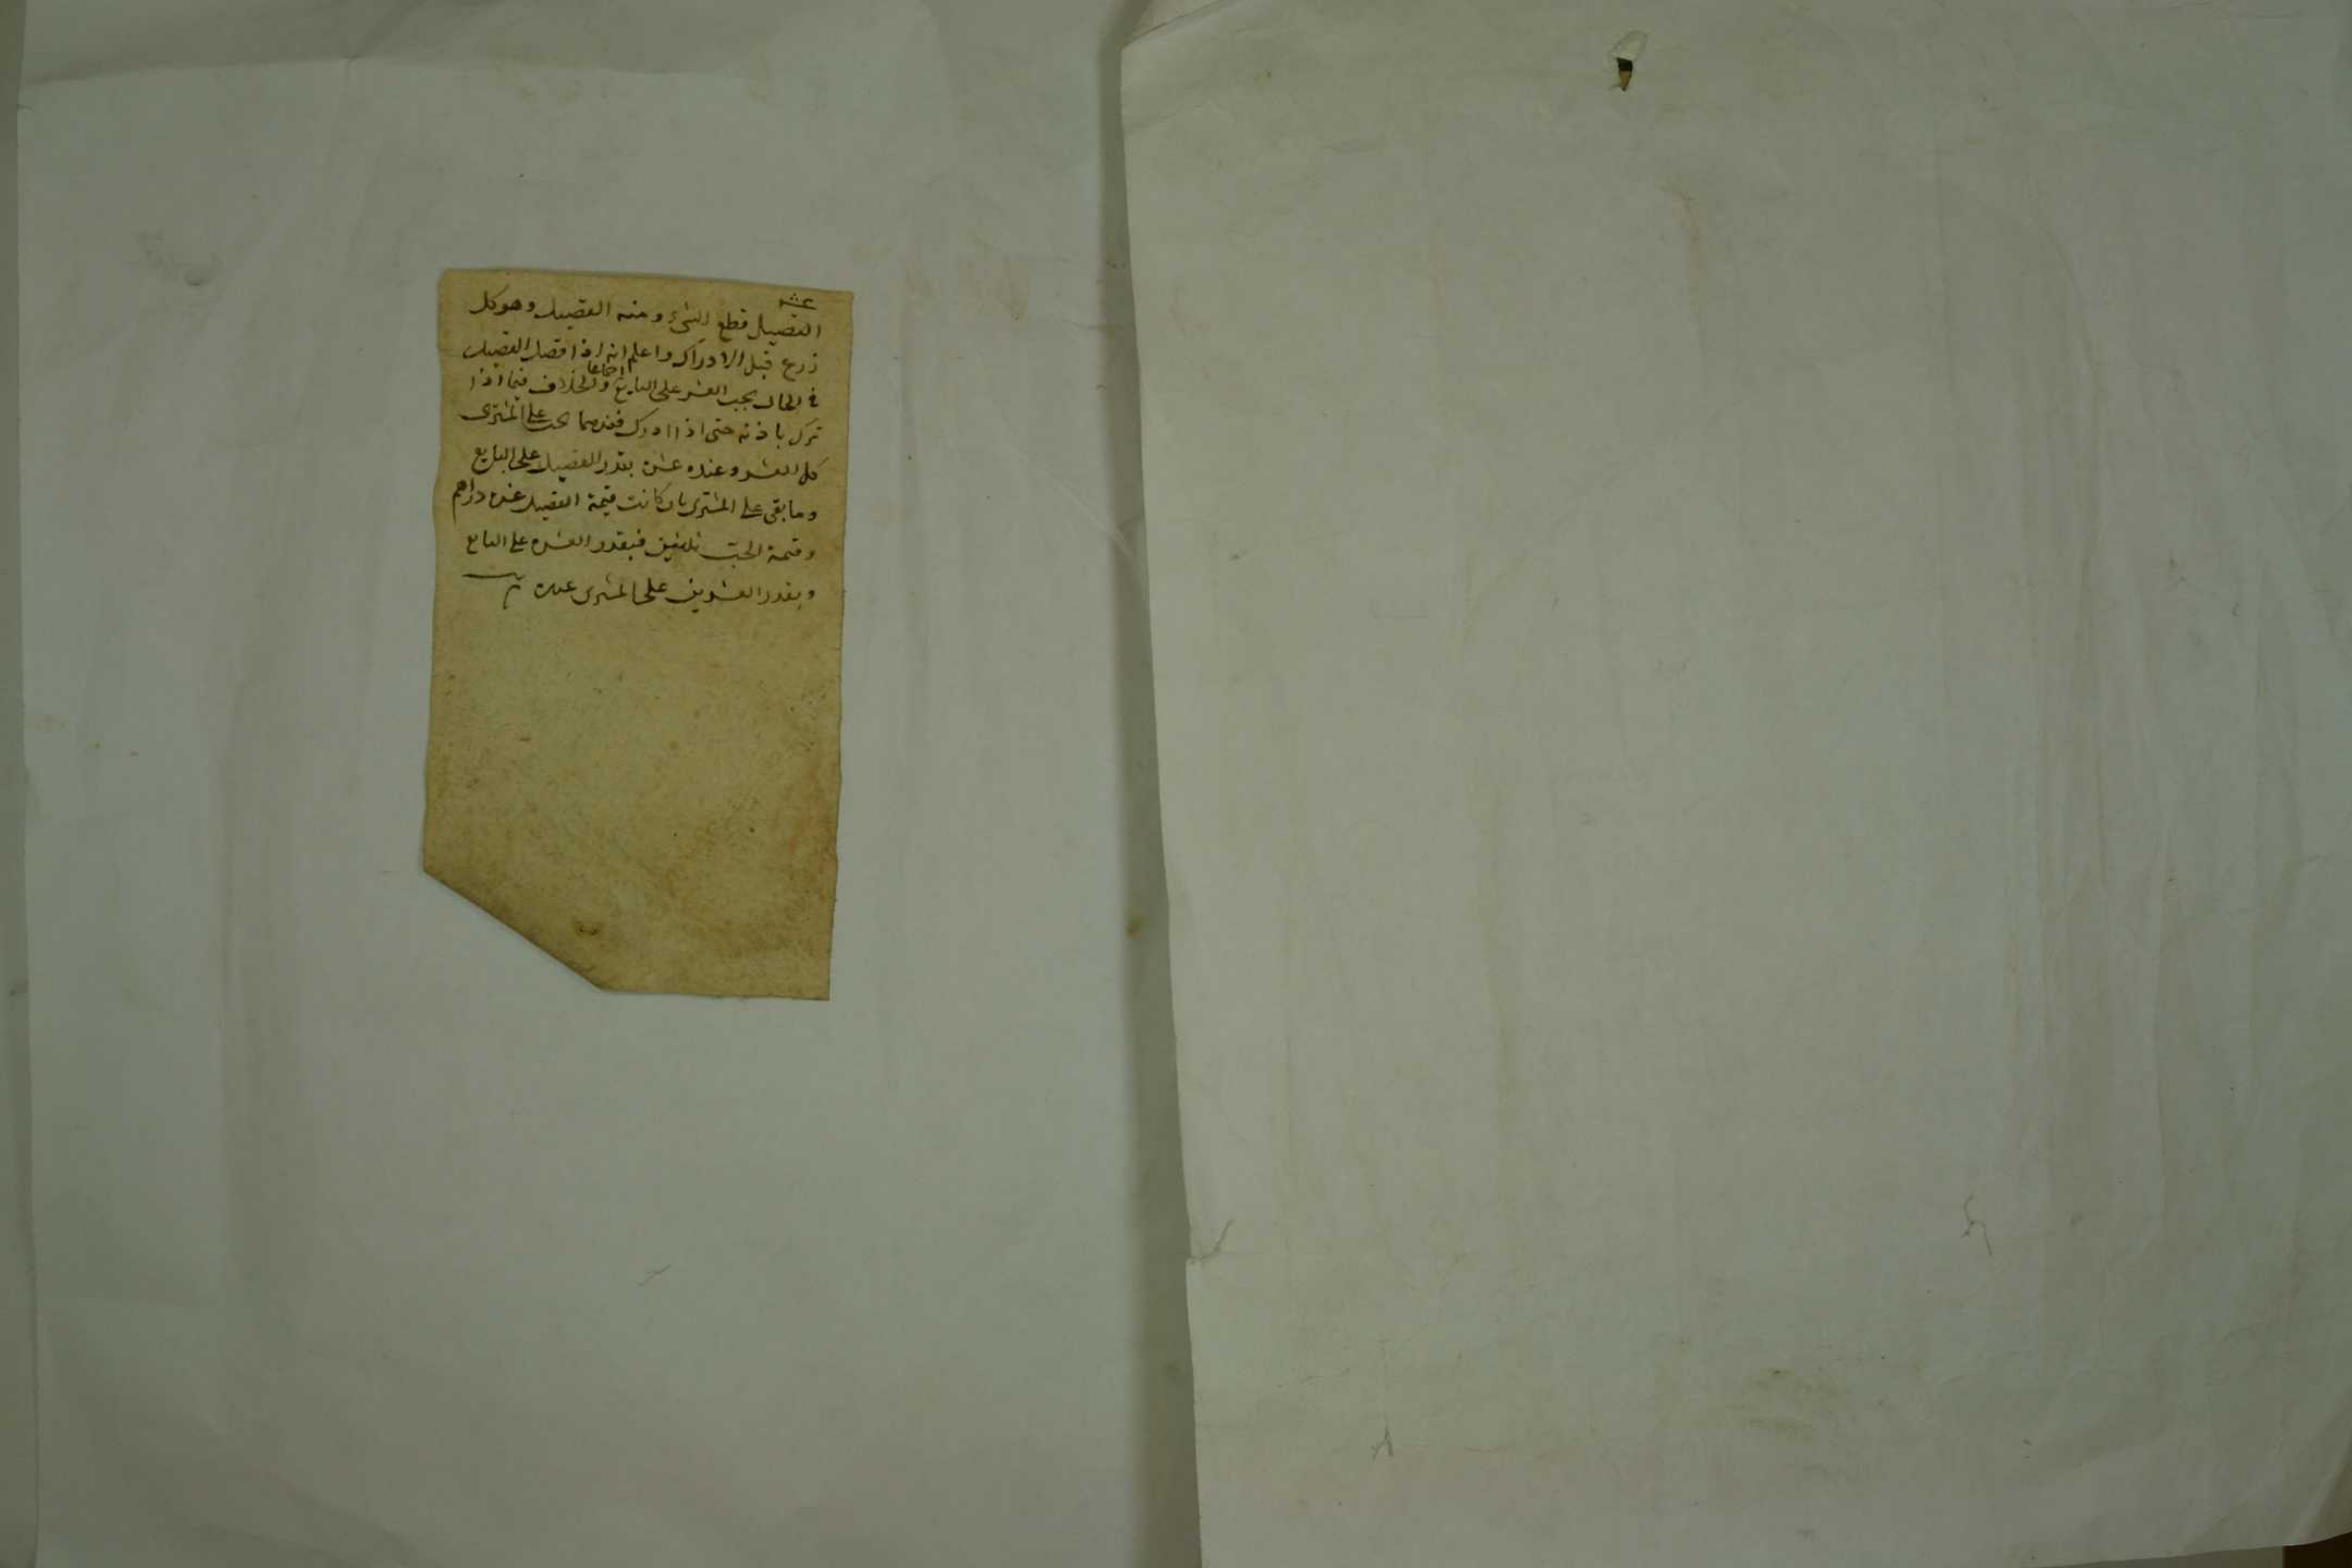 القصيل قطع الشئ ومنه القصيل وهو كل
زرع قبل الادراك واعلم انه اذا قصل القصيل
في الحال يجب العشر على البايع اجماعا والخلاف فيما اذا
ترك باذنه حتى اذا ادرك فعندهما يجب على المشترى
كل العشر وعنده عشر بقدر القصيل على البايع
وما بقى على المشترى بان كانت قيمة القصيل عشرة دراهم
وقيمة الحب ثلثين فبقدر العشرة على البايع
وبقدر العشرين على المشترى عنده